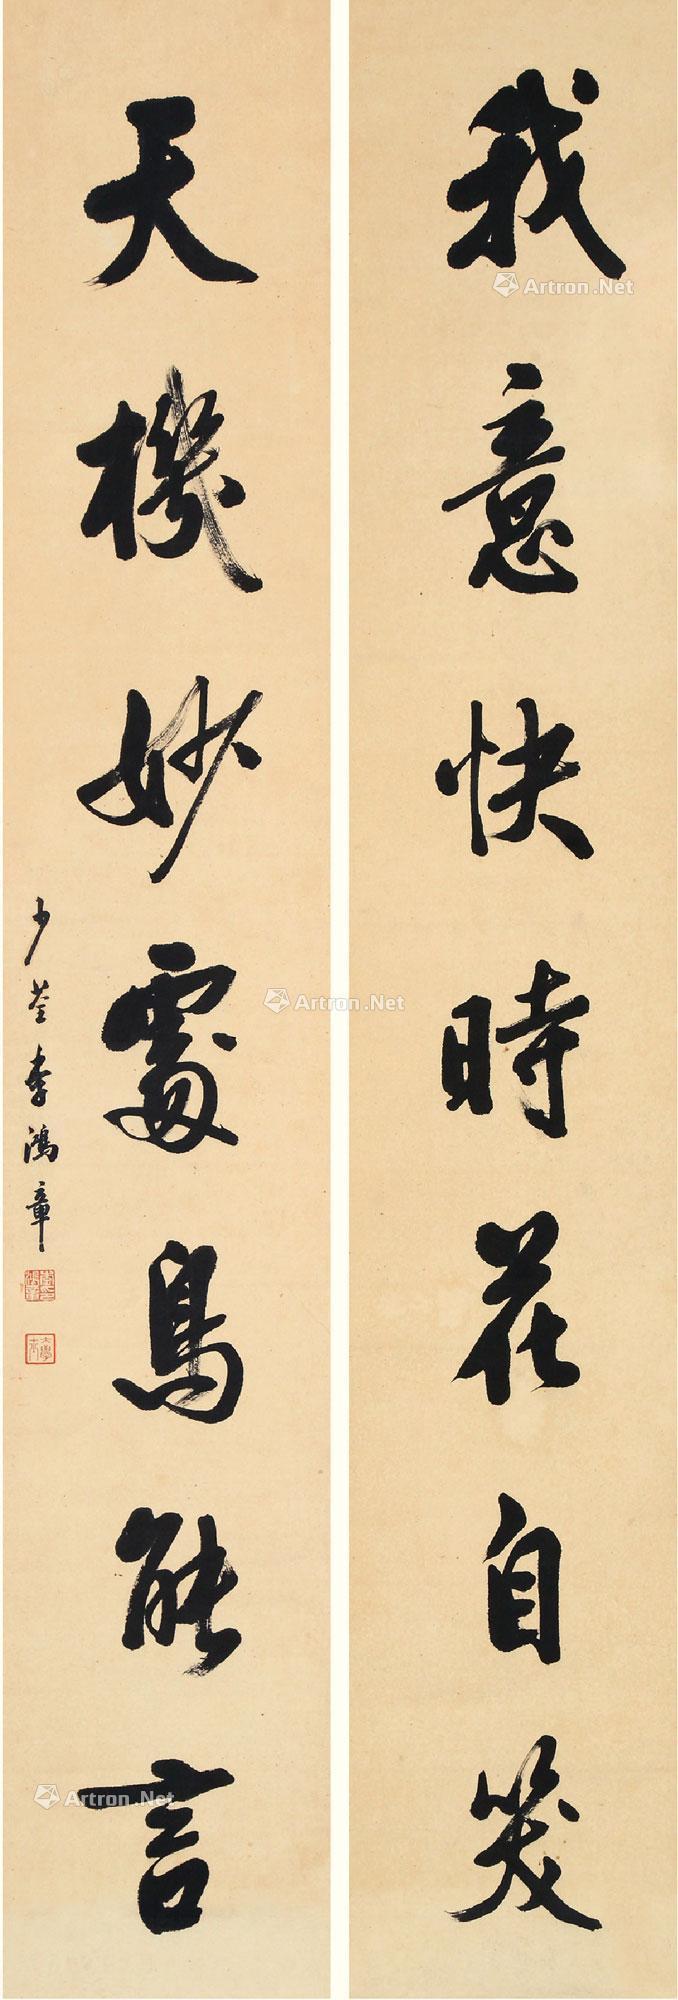 我意快時花自笑
天機妙處鳥能言
少荃李鴻章
Artron.Net
Artron.Net
Artron.Net